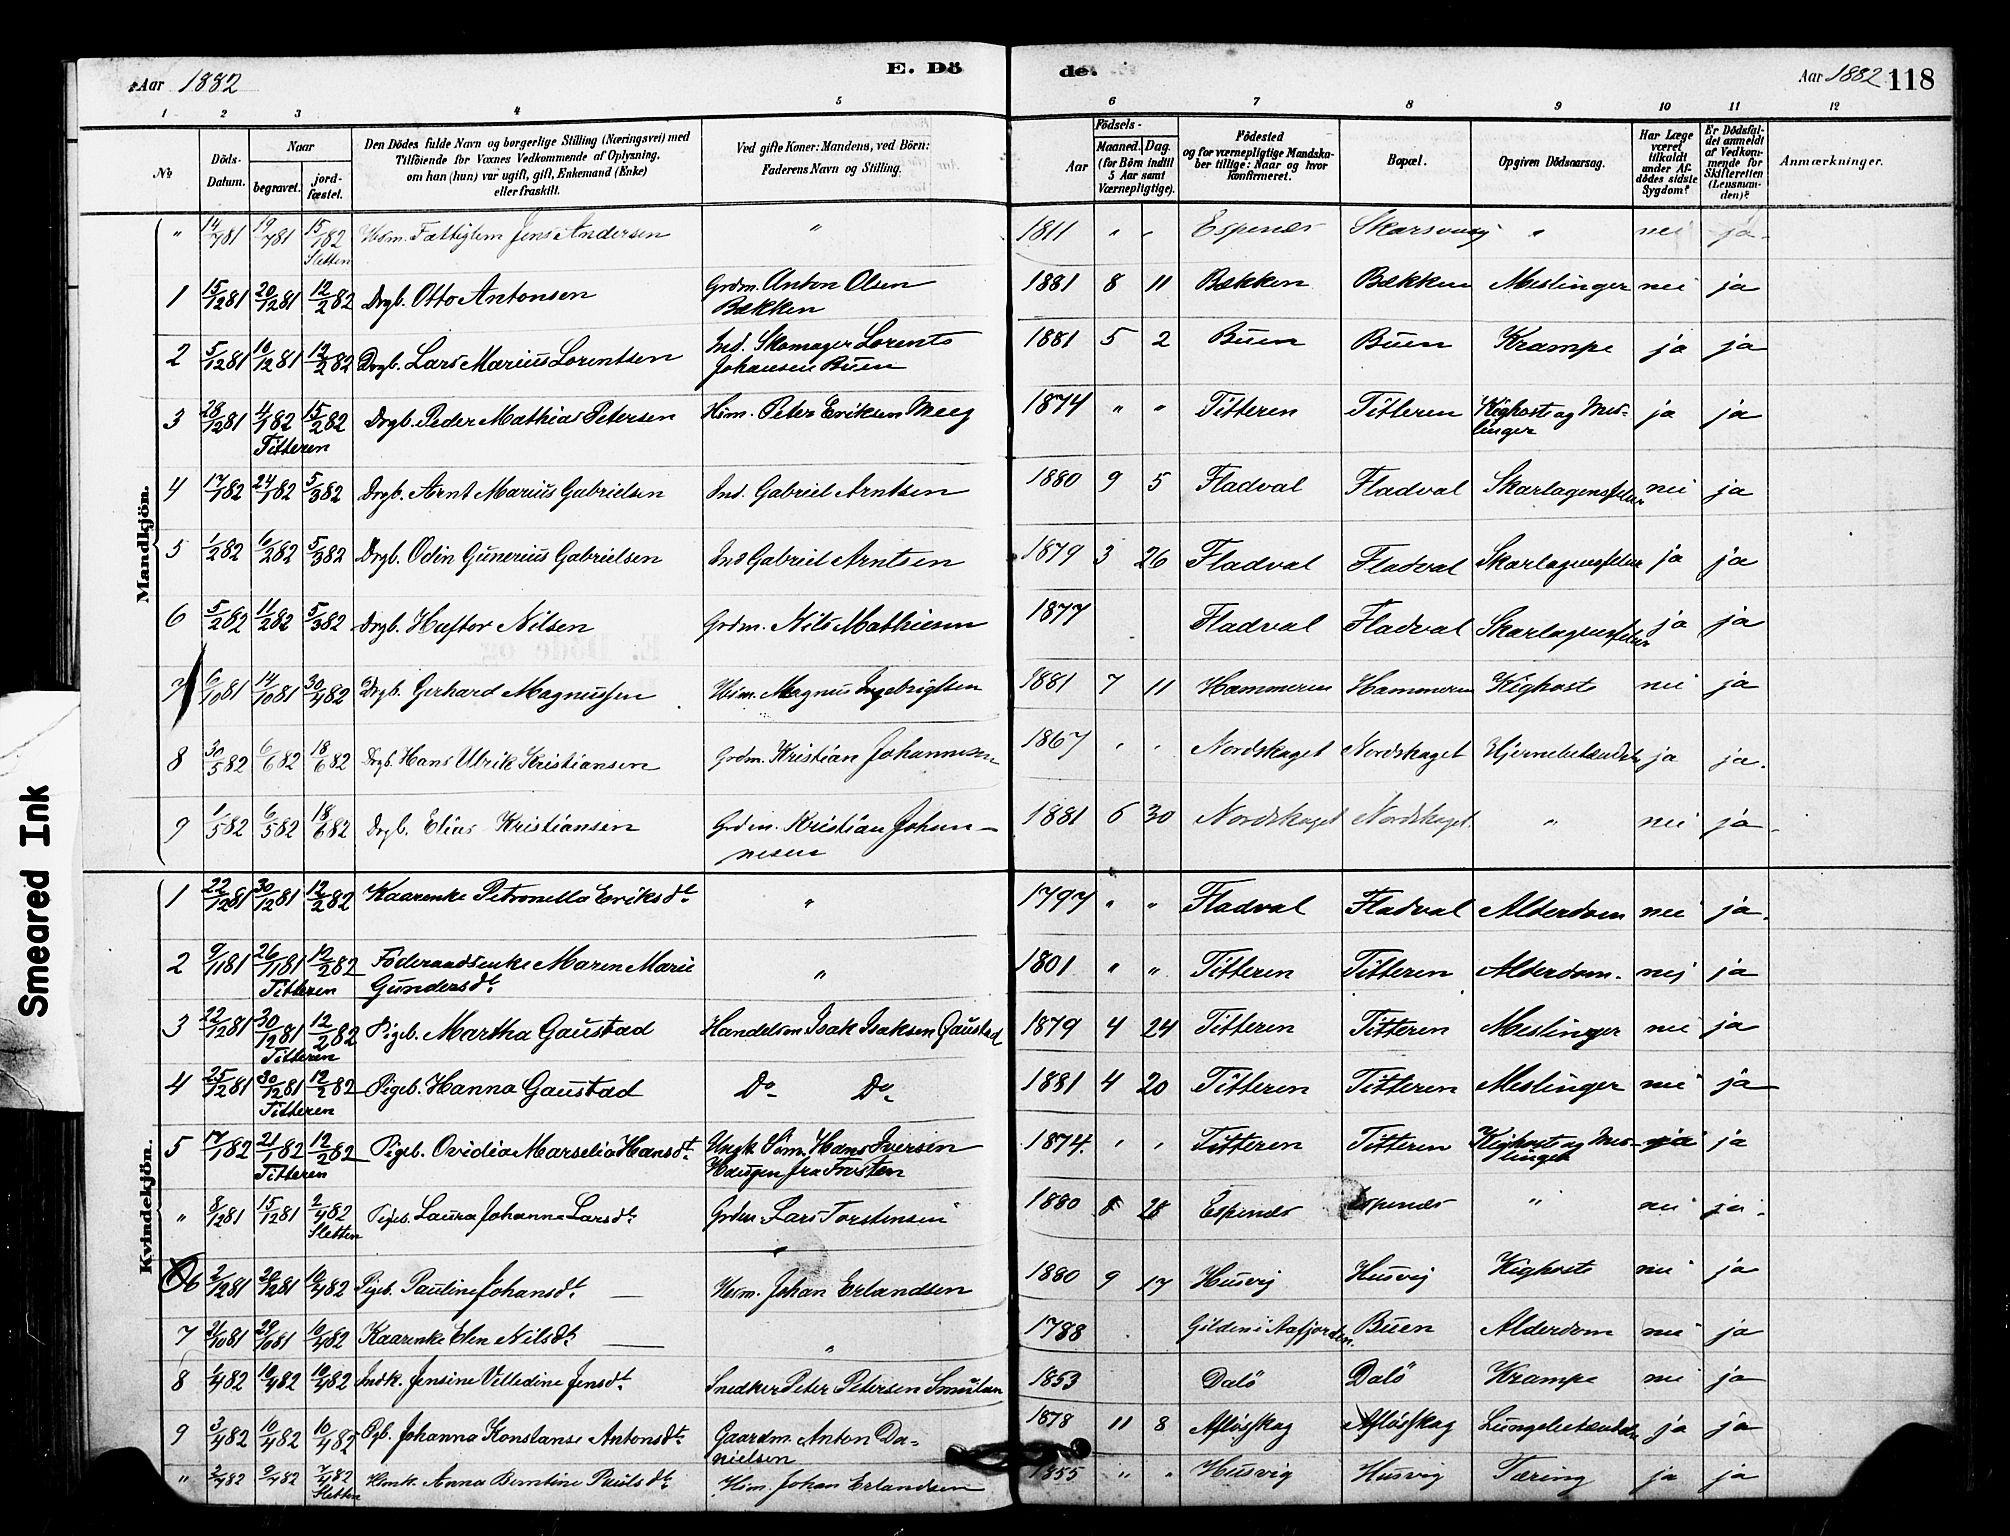 Aar 1882
E. Dö
de.
Aar 1882 118
1 2 3 4 5 6 7 8 9 10 11 12
No
Döds-Datum.
Naar
begravet.
jord-fæstet.
Den Dödes fulde Navn og borgerlige Stilling (Næringsvei) med
Tilföiende for Voxnes Vedkommende af Oplysning,
om han (hun) var ugift, gift, Enkemand (Enke)
eller fraskilt.
Ved gifte Koner: Mandens, ved Börn:
Faderens Navn og Stilling.
Födsels-
Aar
Maaned. Dag.
(for Börn indtil
5 Aar samt
Værnepligtige).
Födested
og for værnepligtige Mandska-
ber tillige: Naar og hvor
konfirmeret.
Bopæl.
Opgiven Dödsaarsag.
Har Læge
været
tilkaldt
under Af-
dödes sidste
Sygdom?
Er Dödsfal-
det anmeldt
af Vedkom-
mende for
Skifteretten
(Lensman-
den)?
Anmærkninger.
Mandkjön.
" 14/7 81 19/7 81 15/1 82 Sletten Husm. Fattiglem Jens Andersen " 1811 " " Espenæs " nei ja
1 15/12 81 20/12 81 12/2 82 Drgb. Otto Antonsen Grdm. Anton Olsen 1881 8 11 Bækken Bækken Meslinger nei ja
Bækken
2 5/12 81 10/12 81 12/2 82 Drgb. Lars Marius Lorentsen Ind. Skomager Lorents 1881 5 2 Buen Buen Krampe ja ja
Johansen Buen
3 28/12 81 4/1 82 15/2 82 Drgb. Peder Mathias Petersen Husm. Peter Eriksen Meeg 1874 " " Titteren Titteren Kighoste og Mes- ja ja
Titteren linger
4 17/1 82 24/1 82 5/3 82 Drgb. Arnt Marius Gabrielsen Ind. Gabriel Arntsen 1880 9 5 Fladval Fladval Skarlagensfeber nei ja
5 1/2 82 6/2 82 5/3 82 Drgb. Odin Gunerius Gabrielsen Ind Gabriel Arntsen 1879 3 26 Fladval Fladval Skarlagensfeber ja ja
6 5/2 82 11/2 82 5/3 82 Drgb. Haftor Nilsen Grdm. Nils Mathiesen 1877 Fladval Fladval Skarlagensfeber ja ja
7 6/10 81 14/10 81 30/4 82 Drgb. Gerhard Magnussen Husm. Magnus Ingebrigtsen 1881 7 11 Hammeren Hammeren Kighoste nei ja
8 30/5 82 6/6 82 18/6 82 Drgb. Hans Ulrik Kristiansen Grdm. Kristian Johannesen 1867 " " Nordskaget Nordskaget Hjernebetændelse ja ja.
9 1/5 82 6/5 82 18/6 82 Drgb. Elias Kristiansen Grdm. Kristian Johan- 1881 6 30 Nordskaget Nordskaget " nei ja
nesen
Kvindekjön.
1 22/12 81 30/12 81 12/2 82 Kaarenke Petronella Eriksdt. " 1797 " " Fladval Fladval Alderdom nei ja.
2 9/11 81 26/11 81 12/2 82 Föderaadsenke Maren Marie " 1801 " " Titteren Titteren Alderdom. nej ja
Titteren Gundersdt.
3 22/12 81 30/12 81 12/2 82 Pigeb. Martha Gaustad Handelsm Isak Isaksen Gaustad 1879 4 24 Titteren Titteren Meslinger nei ja
Titteren
4 25/12 81 30/12 81 12/2 82 Pigeb. Hanna Gaustad Do Do 1881 4 20 Titteren Titteren Meslinger nei ja
Titteren
5 17/1 82 21/1 82 12/2 82 Pigeb. Ovidia Marselia Hansdt. Ungk. Söm. Hans Iversen 1874. " " Titteren Titteren Kighoste og Mes- ja
Titteren Haugen fra Frosten linger
" 8/12 81 15/12 81 2/4 82 Sletten Pigeb. Laura Johanne Larsdt. Grdm Lars Torstensen 1880 8 28 Espenæs Espenæs " nei ja.
6 2/12 81 20/12 81 10/4 82 Pigeb. Pauline Johansdt. Husm. Johan Erlandsen 1880 9 17 Husvig Husvig Kighoste nei ja
7 21/10 81 29/10 81 10/4 82 Kaarenke Elen Nilsdt. " 1788 Gilden i Aafjorden. Buen Alderdom nei ja
8 1/4 82 10/4 82 10/4 82 Indk. Jensine Velledine Jensdt. Snedker Peter Petersen 1853 Dalö Dalö Krampe nei ja
9 3/4 82 10/4 82 10/4 82 Pgb. Johanna Konstanse Antonsdt. Gaardm. Anton Da- 1878 11 8 Aflösskag Aflösskag Lungebetændelse ja ja
nielsen
" 2/4 82 9/4 82 2/4 82 Sletten Husmk. Anna Berntine Paulsdt. Husm. Johan Erlandsen 1855 " " Husvig Husvig Tæring ja ja
Smeared Ink